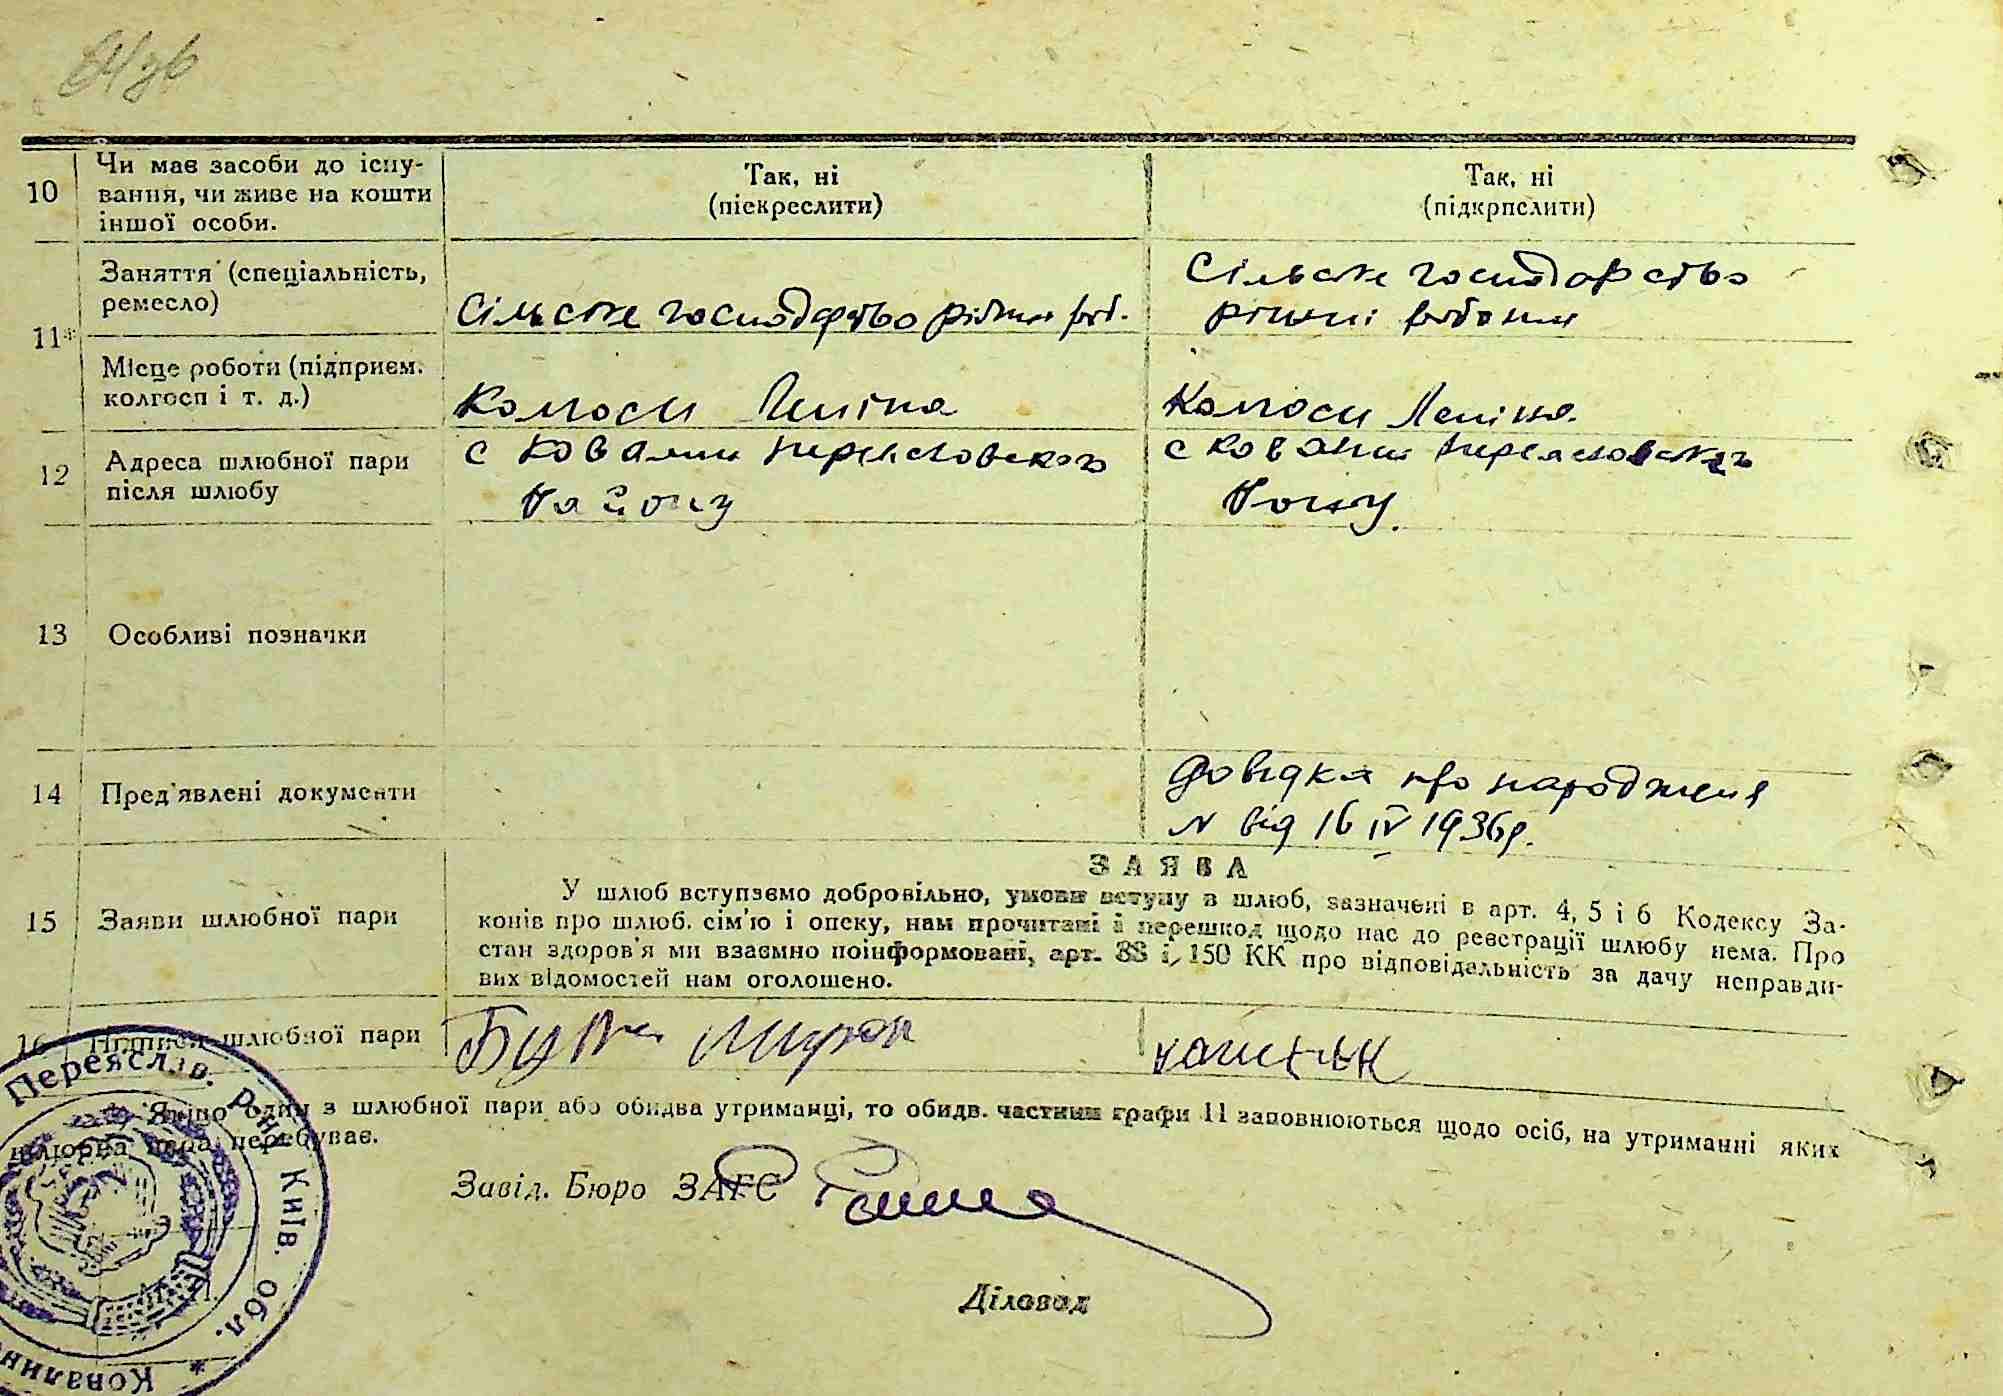 10
Чи має засоби до існу-
вання, чи живе на кошти
іншої особи.
Так, ні
(піекреслити)
Так, ні
(підкрпслити)
11*
Заняття (спеціальність,
ремесло)
Сільске господарство рільн роб.
Сільске господарство
рільні
Місце роботи (підприєм.
колгосп і т. д.)
Колгосп Леніна
Колгосп Леніна
12
Адреса шлюбної пари
після шлюбу
с Ковалин Переяславского
Району
с Ковалин
Району.
13
Особливі позначки
14
Пред'явлені документи
Довідка про народження
N від 16 IV 1936р.
15
Заяви шлюбної пари
ЗАЯВА
У шлюб вступаємо добровільно, умови вступу в шлюб, зазначені в арт. 4, 5 і 6 Кодексу За-
конів про шлюб. сім'ю і опеку, нам прочитані і перешкод щодо нас до реєстрації шлюбу нема. Про
стан здоров'я ми взаємно поінформовані, арт. 88 і, 150 КК про відповідальність за дачу неправди-
вих відомостей нам оголошено.
16
Підписи шлюбної пари
Мирон
Якщо один з шлюбної пари або обидва утриманці, то обидв. частини графи 11 заповнюються щодо осіб, на утриманні яких
шлюбна пара перебуває.
Завід. Бюро ЗАГС
Діловод
М. П.
Переяслав. Рну Київ. обл.
* Ковалин